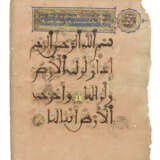 بسم الله الرحمن الرحيم
إذا زلزلت الأرض
زلزالها وأخرجت
الأرض أثقالها